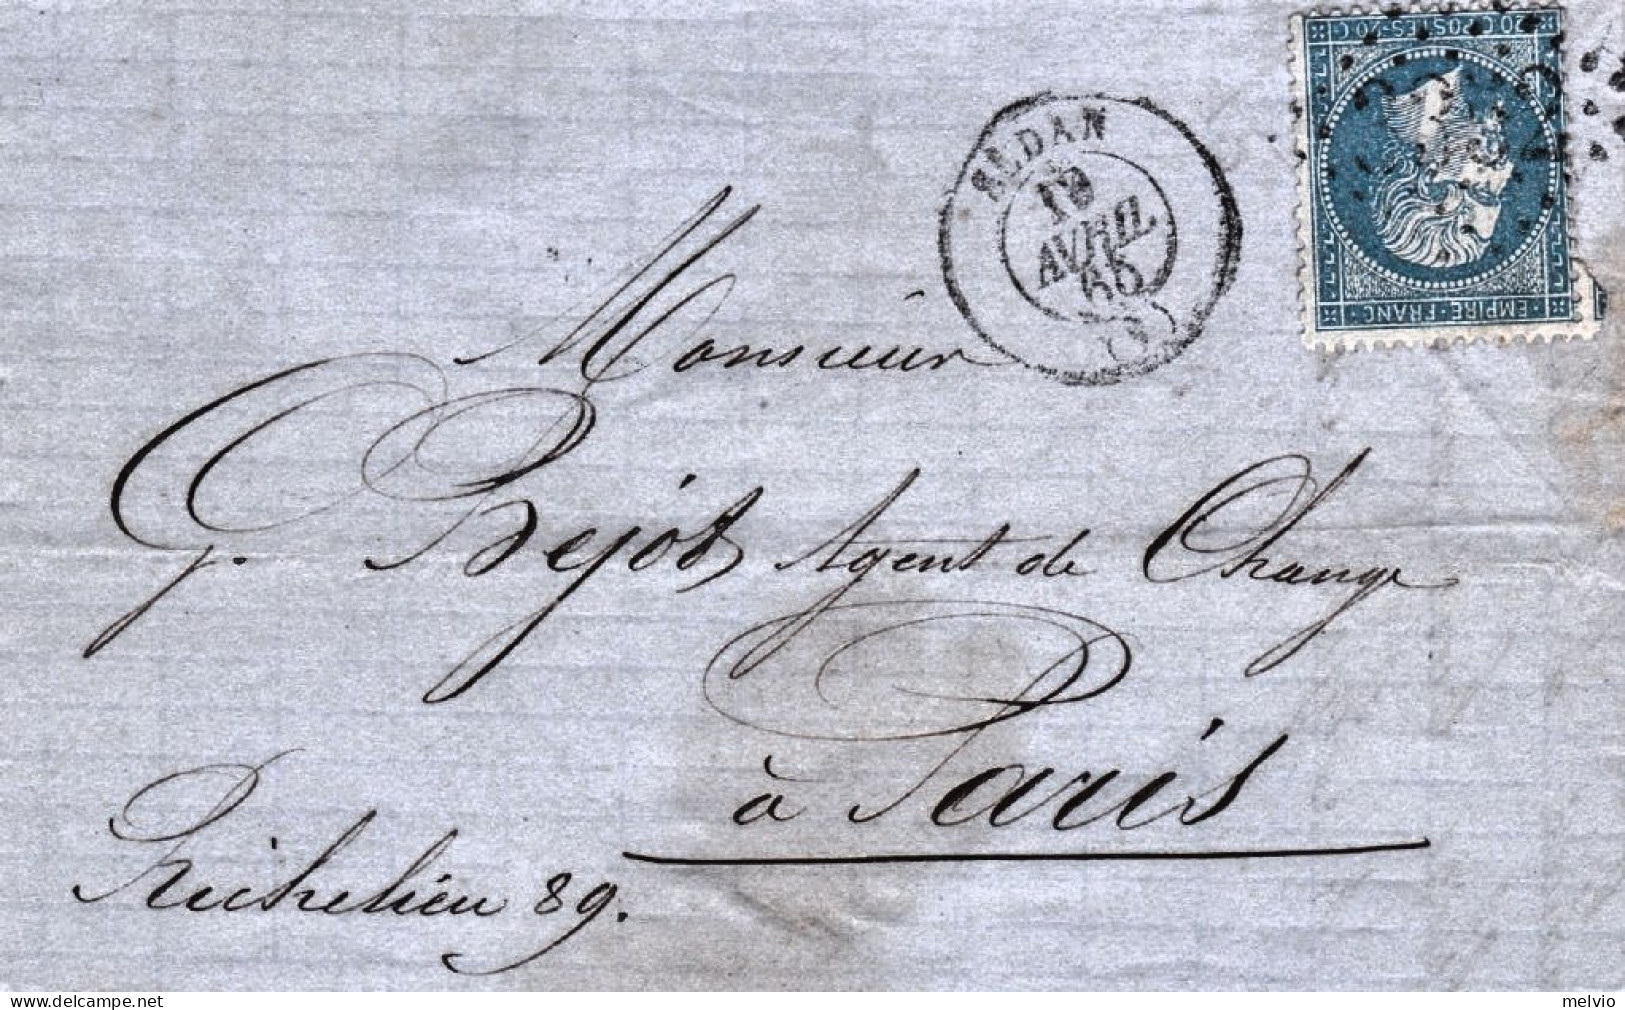 20 C POSTES 20 C
EMPIRE FRANC
SEDAN
AVRIL
65
Monsieur
G. Bejot Agent de Change
à Paris
Richelieu 89.
melvio